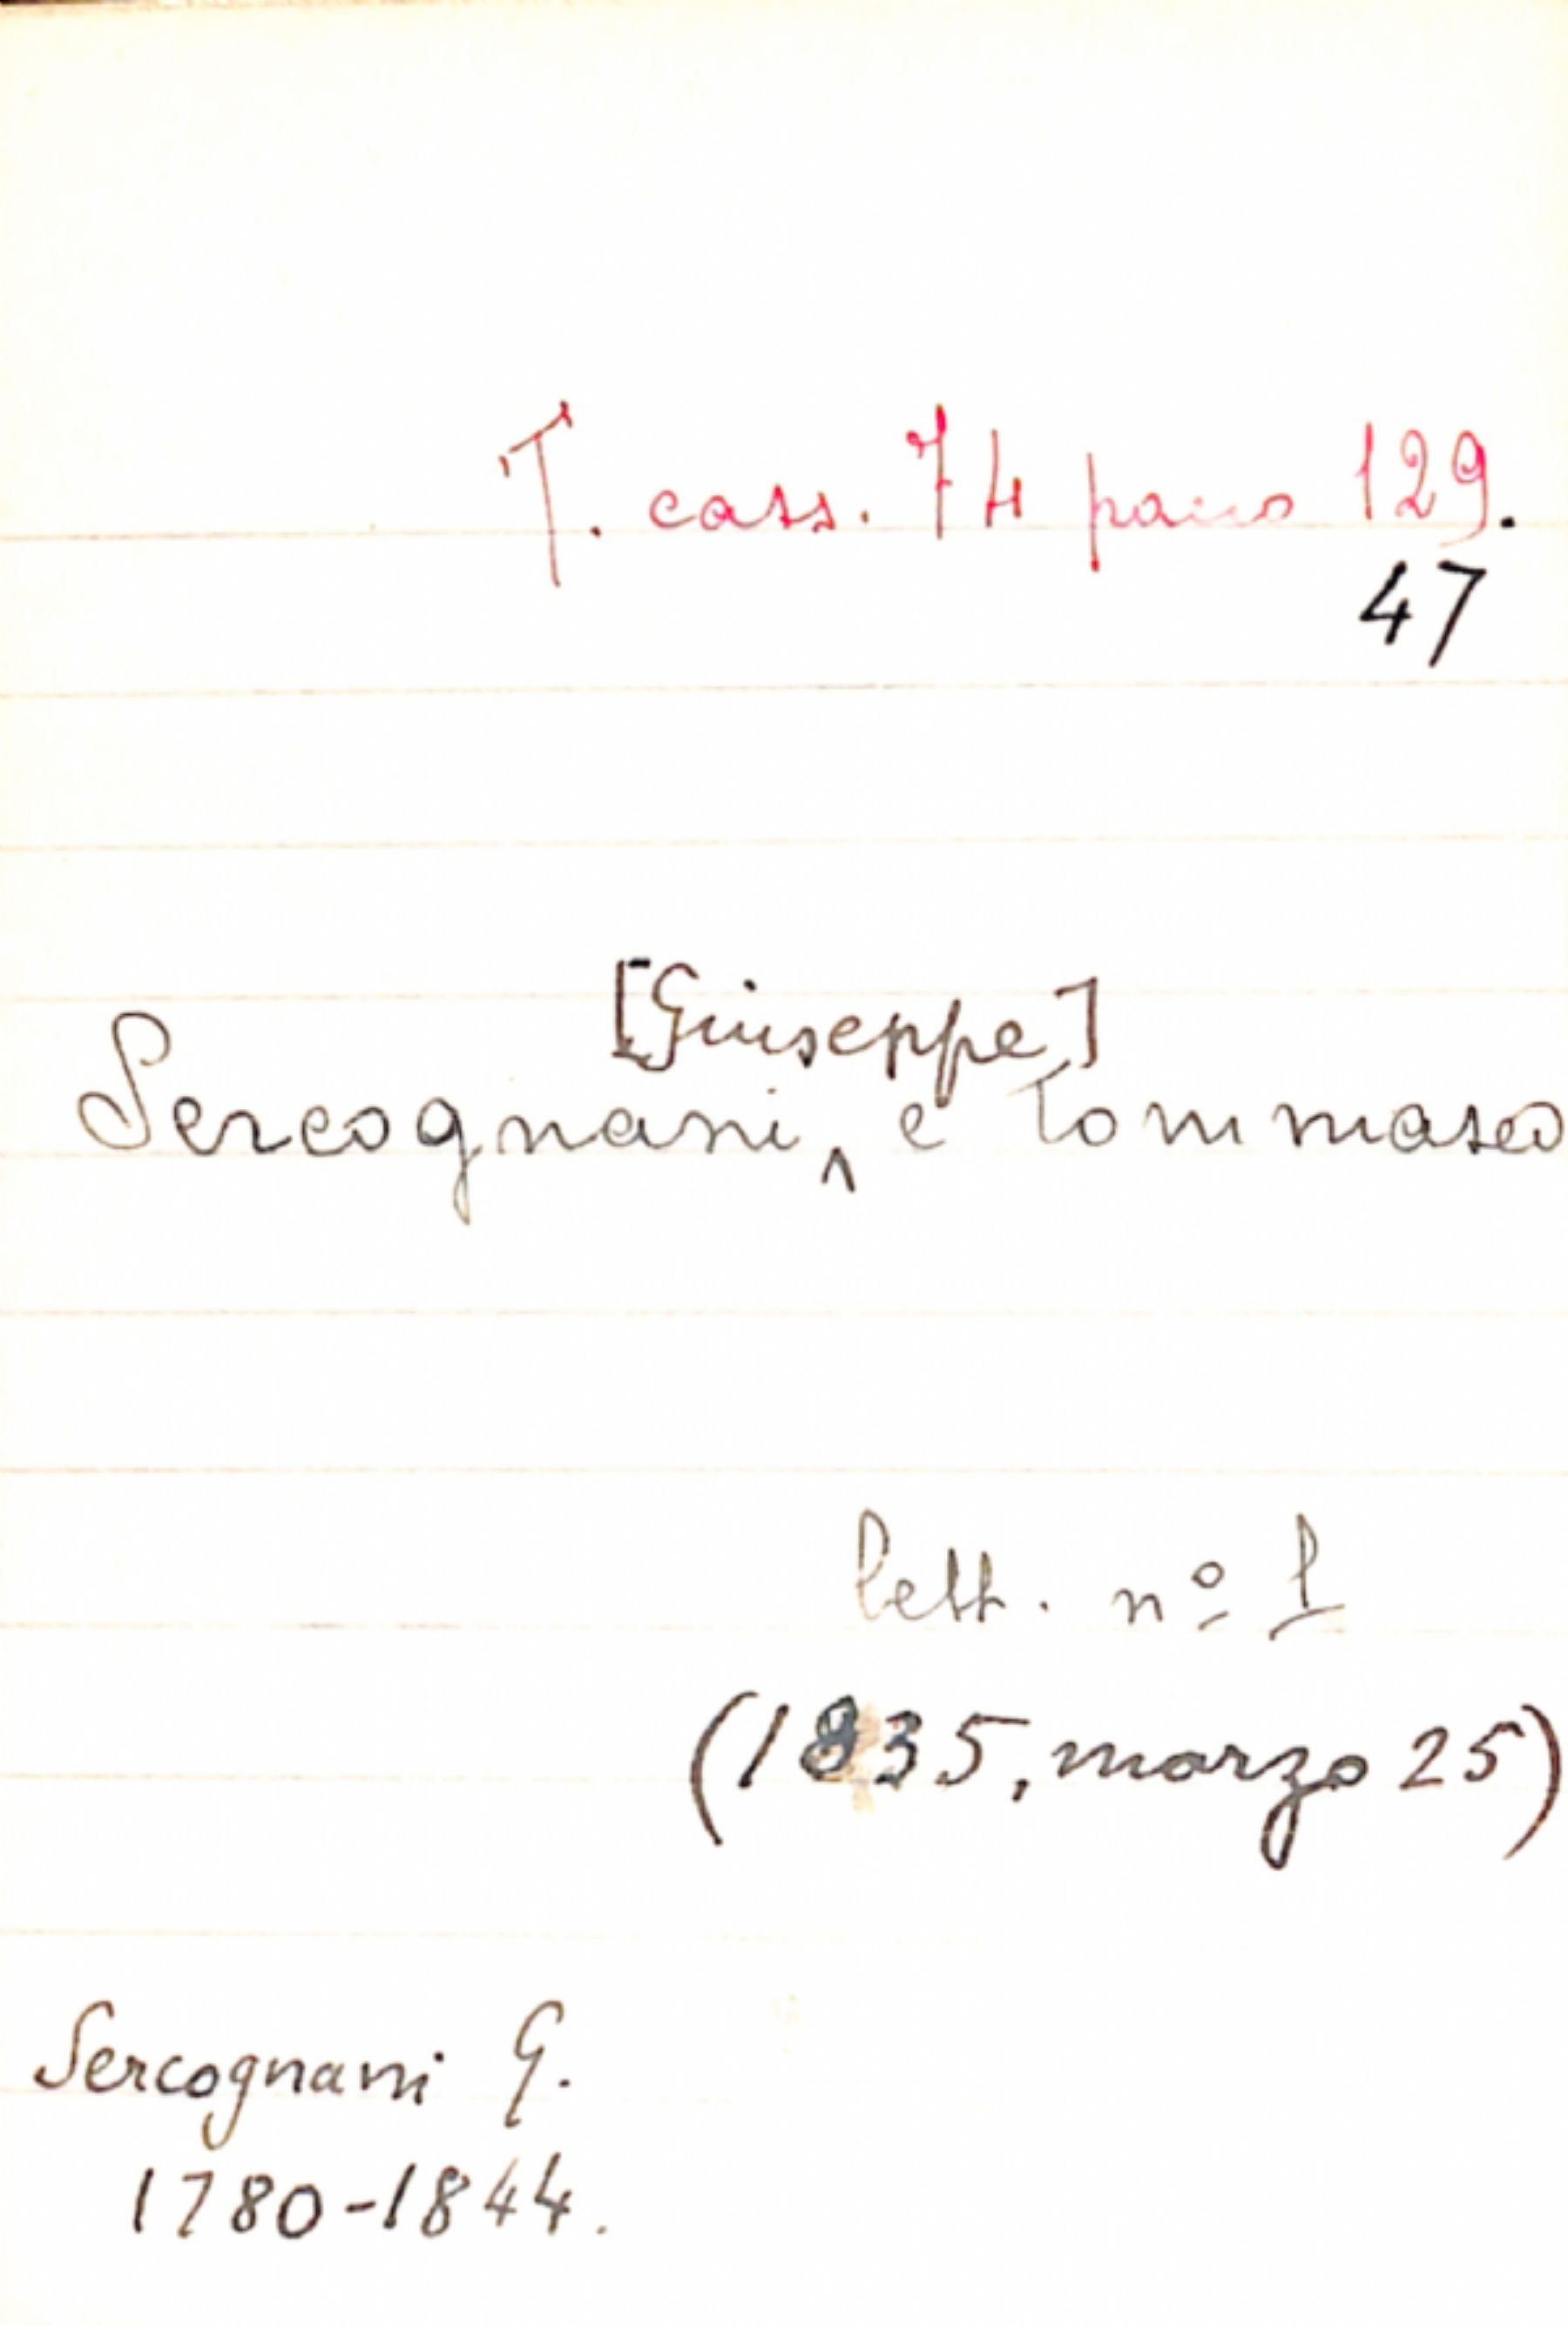 T. cass. 74 pacco 129.
47
[Giuseppe]
Sercognani, ^ e Tommaso
lett. nº 1
(1835, marzo 25)
Sercognani G.
1780-1844.